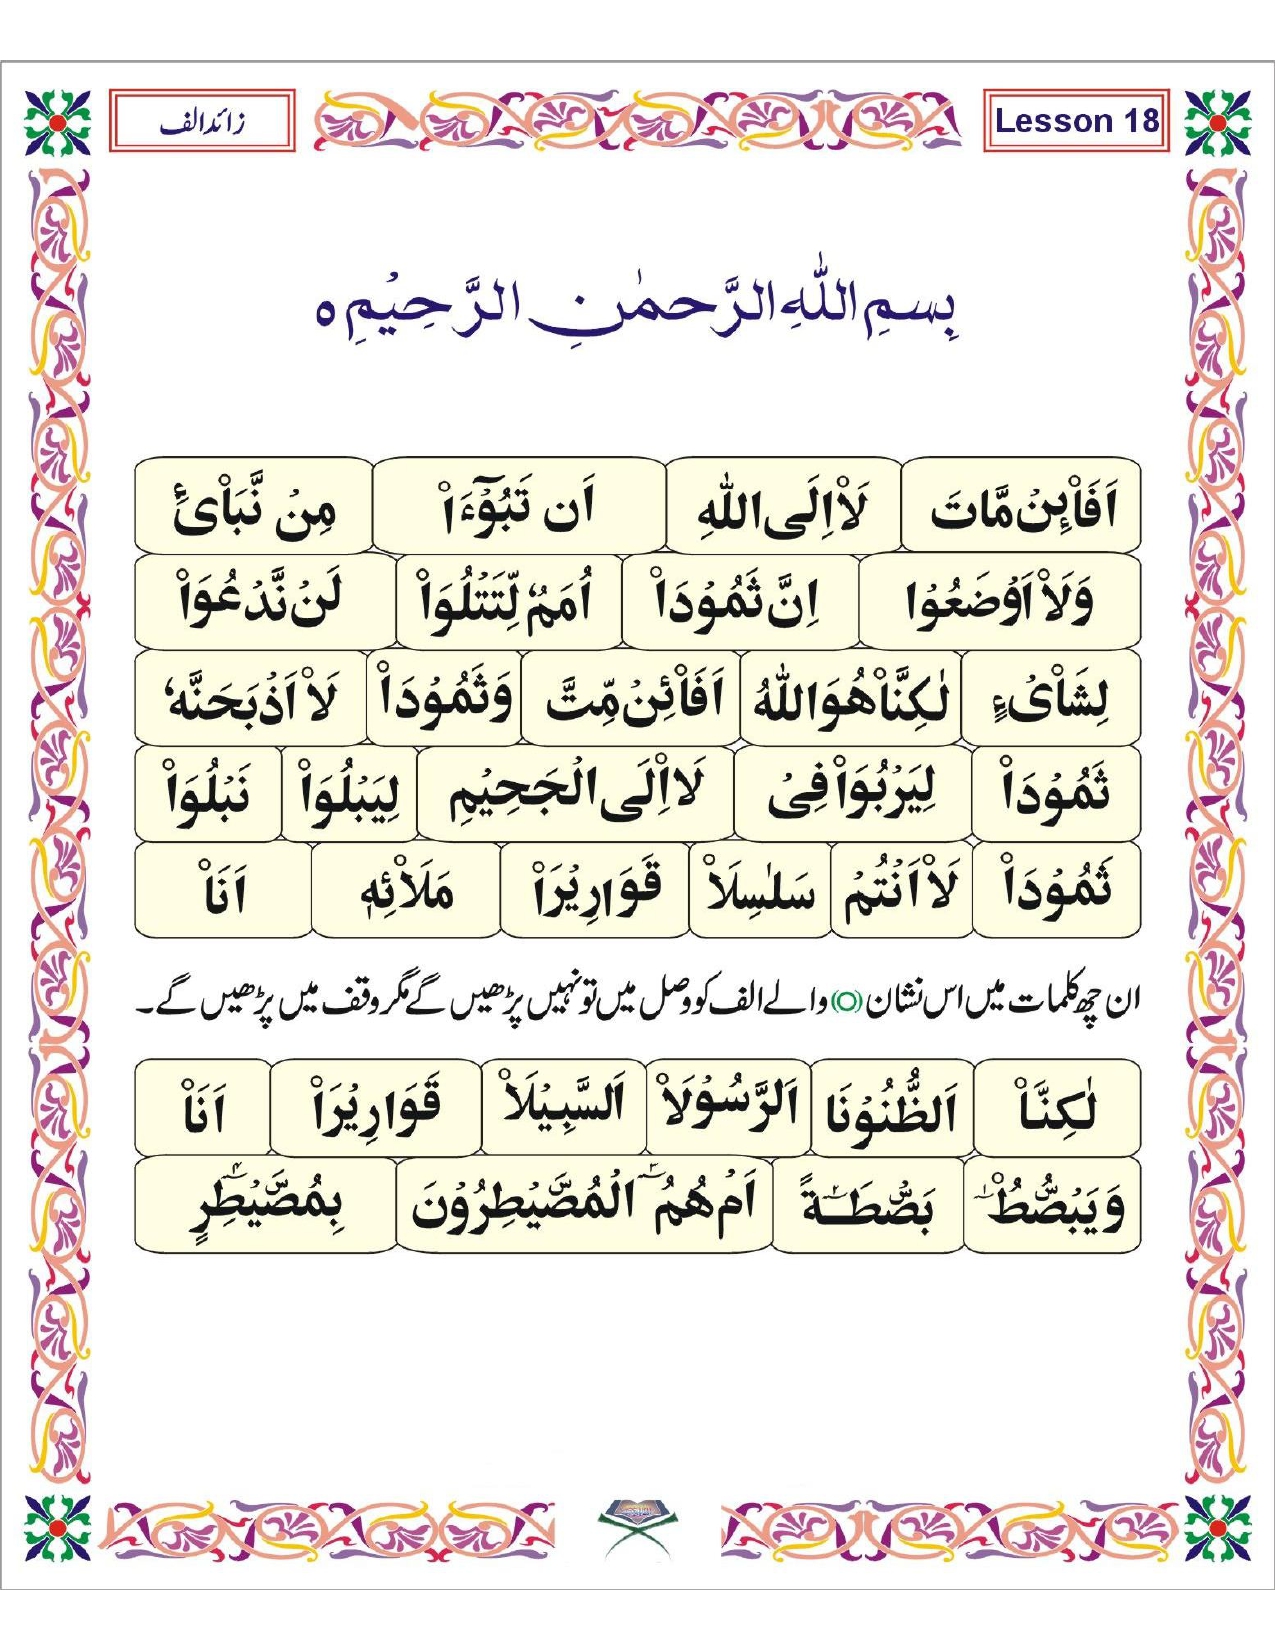 زائد الف Lesson 18
بِسمِ اللّٰهِ الرَّحمٰنِ الرَّحِيْمِ ه
اَفَا۠ئِنْ مَّاتَ لَا۠اِلَى اللّٰهِ اَن تَبُوْٓءَا۠ مِنْ نَّبَا۠یِٔ
وَلَا۠اَوْضَعُوْا اِنَّ ثَمُوْدَا۠ اُمَمٌ لِّتَتْلُوَا۠ لَنْ نَّدْعُوَا۠
لِشَا۠یْءٍ لٰكِنَّا۠ هُوَ اللّٰهُ اَفَا۠ئِنْ مِّتَّ وَثَمُوْدَا۠ لَا۠اَذْبَحَنَّهٗ
ثَمُوْدَا۠ لِيَرْبُوَا۠ فِیْ لَا۠اِلَى الْجَحِيْمِ لِيَبْلُوَا۠ نَبْلُوَا۠
ثَمُوْدَا۠ لَا۠اَنْتُمْ سَلٰسِلَا۠ قَوَارِيْرَا۠ مَلَا۠ئِهٖ اَنَا۠
ان چھ کلمات میں اس نشان (○) والے الف کو وصل میں تو نہیں پڑھیں گے مگر وقف میں پڑھیں گے۔
لٰكِنَّا۠ اَلظُّنُوْنَا اَلرَّسُوْلَا۠ اَلسَّبِيْلَا۠ قَوَارِيْرَا۠ اَنَا۠
وَيَبْصُۜطُ بَصْۜطَةً اَمْ هُمُ الْمُصَۜيْطِرُوْنَ بِمُصَۜيْطِرٍ